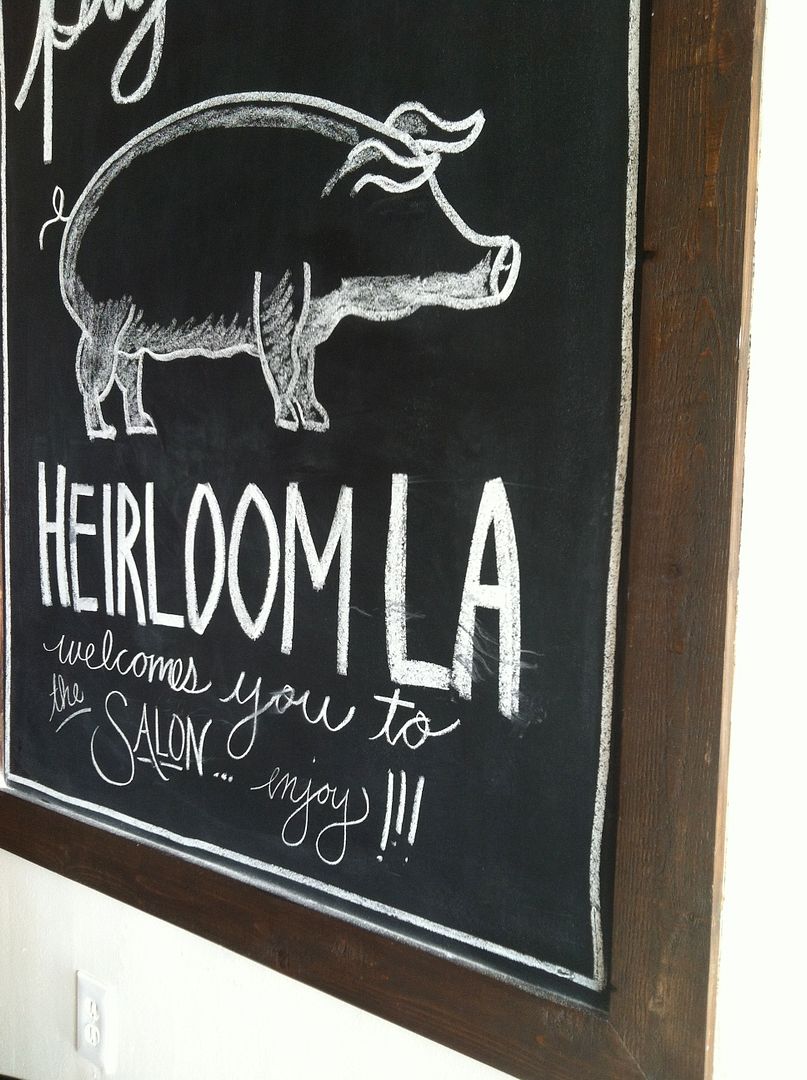 HEIRLOOM LA
welcomes you to
the SALON... enjoy!!!